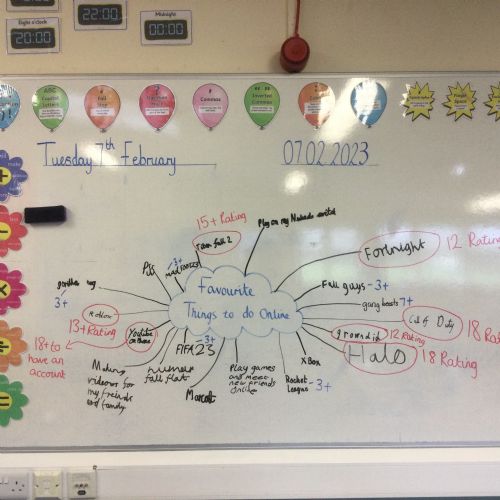 Eight o'clock
20:00
22:00
Midnight
00:00
ABC
Capital
Letters
Full
Stop
?
Question
Mark
Commas
Inverted
Commas
Tuesday 7th February
07.02.2023
15+ Rating
Play on my
Fortnight
12 Rating
PS5
3+
Fall guys -3+
gang beasts 7+
Call of Duty
18 Rating
ground.io
12 Rating
Halo
18 Rating
Favourite
Things to do Online
3+
13+ Rating
18+ to
have an
account
Youtube
on there
-3+
FIFA 23
Making
videos for
my friends
and family.
human
fall flat
Play games
and meet
new friends
online
X Box
Rocket
League -3+